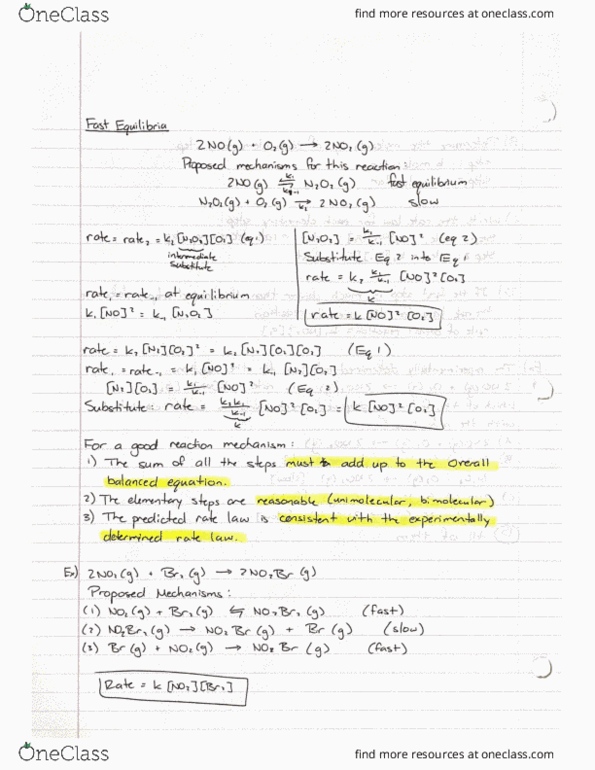 OneClass find more resources at oneclass.com
Fast Equilibria
2NO(g) + O₂(g) → 2NO₂(g)
Proposed mechanisms for this reaction
2NO(g) k₁ ⇌ k₋₁ N₂O₂(g) fast equilibrium
N₂O₂(g) + O₂(g) → k₂ 2NO₂(g) slow
rate = rate₂ = k₂[N₂O₂][O₂] (eq 1)
intermediate
substitute
rate₁ = rate₋₁ at equilibrium
k₁[NO]² = k₋₁[N₂O₂]
[N₂O₂] = k₁/k₋₁ [NO]² (eq 2)
Substitute Eq 2 into Eq 1
rate = k₂ k₁/k₋₁ [NO]²[O₂]
k
rate = k[NO]²[O₂]
(Eq 1)
(Eq 2)
Substitute = rate = k₂k₁/k₋₁ [NO]²[O₂] = k[NO]²[O₂]
k
For a good reaction mechanism:
1) The sum of all the steps must add up to the overall
balanced equation.
2) The elementary steps are reasonable (unimolecular, bimolecular)
3) The predicted rate law is consistent with the experimentally
determined rate law.
Ex) 2NO₂(g) + Br₂(g) → 2NO₂Br(g)
Proposed Mechanisms:
(1) NO₂(g) + Br₂(g) ⇌ NO₂Br₂(g) (fast)
(2) NO₂Br₂(g) → NO₂Br(g) + Br(g) (slow)
(3) Br(g) + NO₂(g) → NO₂Br(g) (fast)
Rate = k[NO₂][Br₂]
OneClass find more resources at oneclass.com